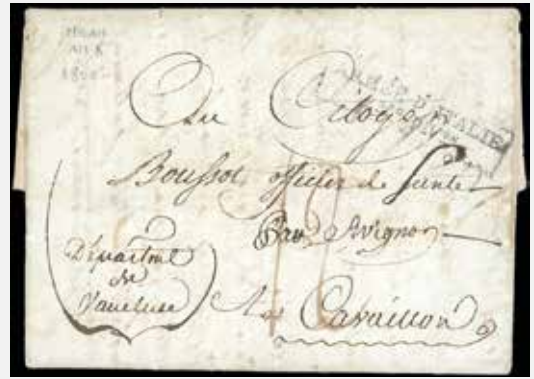 MILAN
AN 8
1800
ARMÉE D'ITALIE
Au Citoyen
Boussot officier de Santé
Par Avignon
Départmt
de
Vaucluse
A Cavaillon